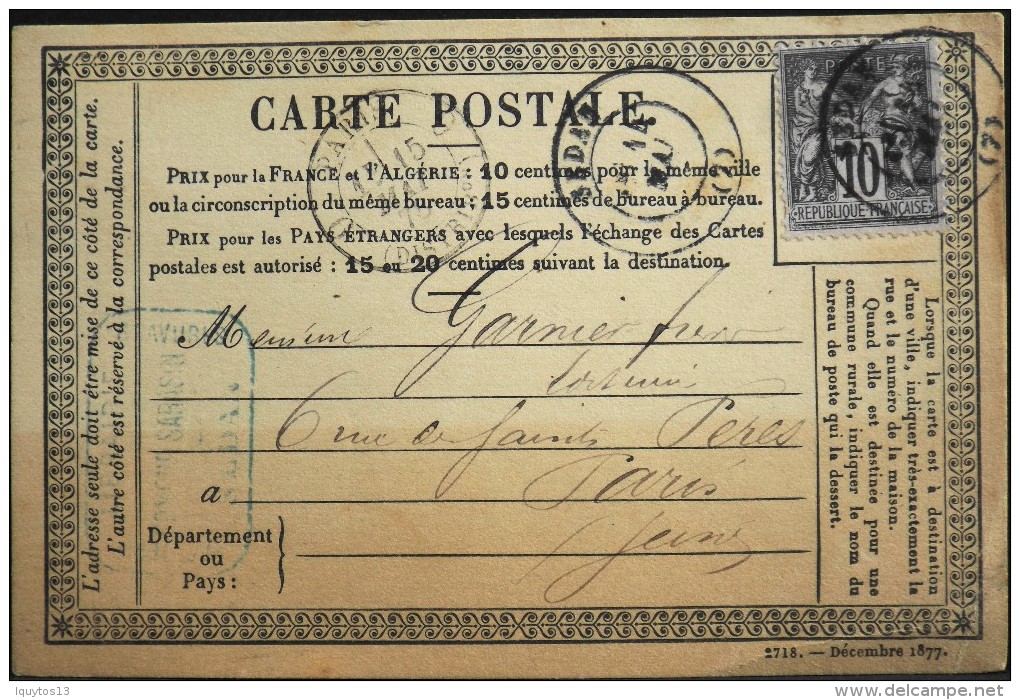 CARTE POSTALE.
PRIX pour la FRANCE et l'ALGÉRIE: 10 centimes pour la même ville
ou la circonscription du même bureau; 15 centimes de bureau à bureau.
PRIX pour les PAYS ÉTRANGERS avec lesquels l'échange des Cartes
postales est autorisé: 15 ou 20 centimes suivant la destination.
Monsieur Garnier
6 rue de Saints Peres
à Paris
Département
ou
Pays:
Seine
L'adresse seule doit être mise de ce côté de la carte.
L'autre côté est réservé à la correspondance.
Lorsque la carte est à destination
d'une ville, indiquer très-exactement la
rue et le numéro de la maison.
Quand elle est destinée pour une
commune rurale, indiquer le nom du
bureau de poste qui la dessert.
POSTE
10
REPUBLIQUE FRANÇAISE
PARIS
15
MAI
SEDAN
14
MAI
(7)
(7)
2718. — Décembre 1877.
lquytos13
delcampe.net